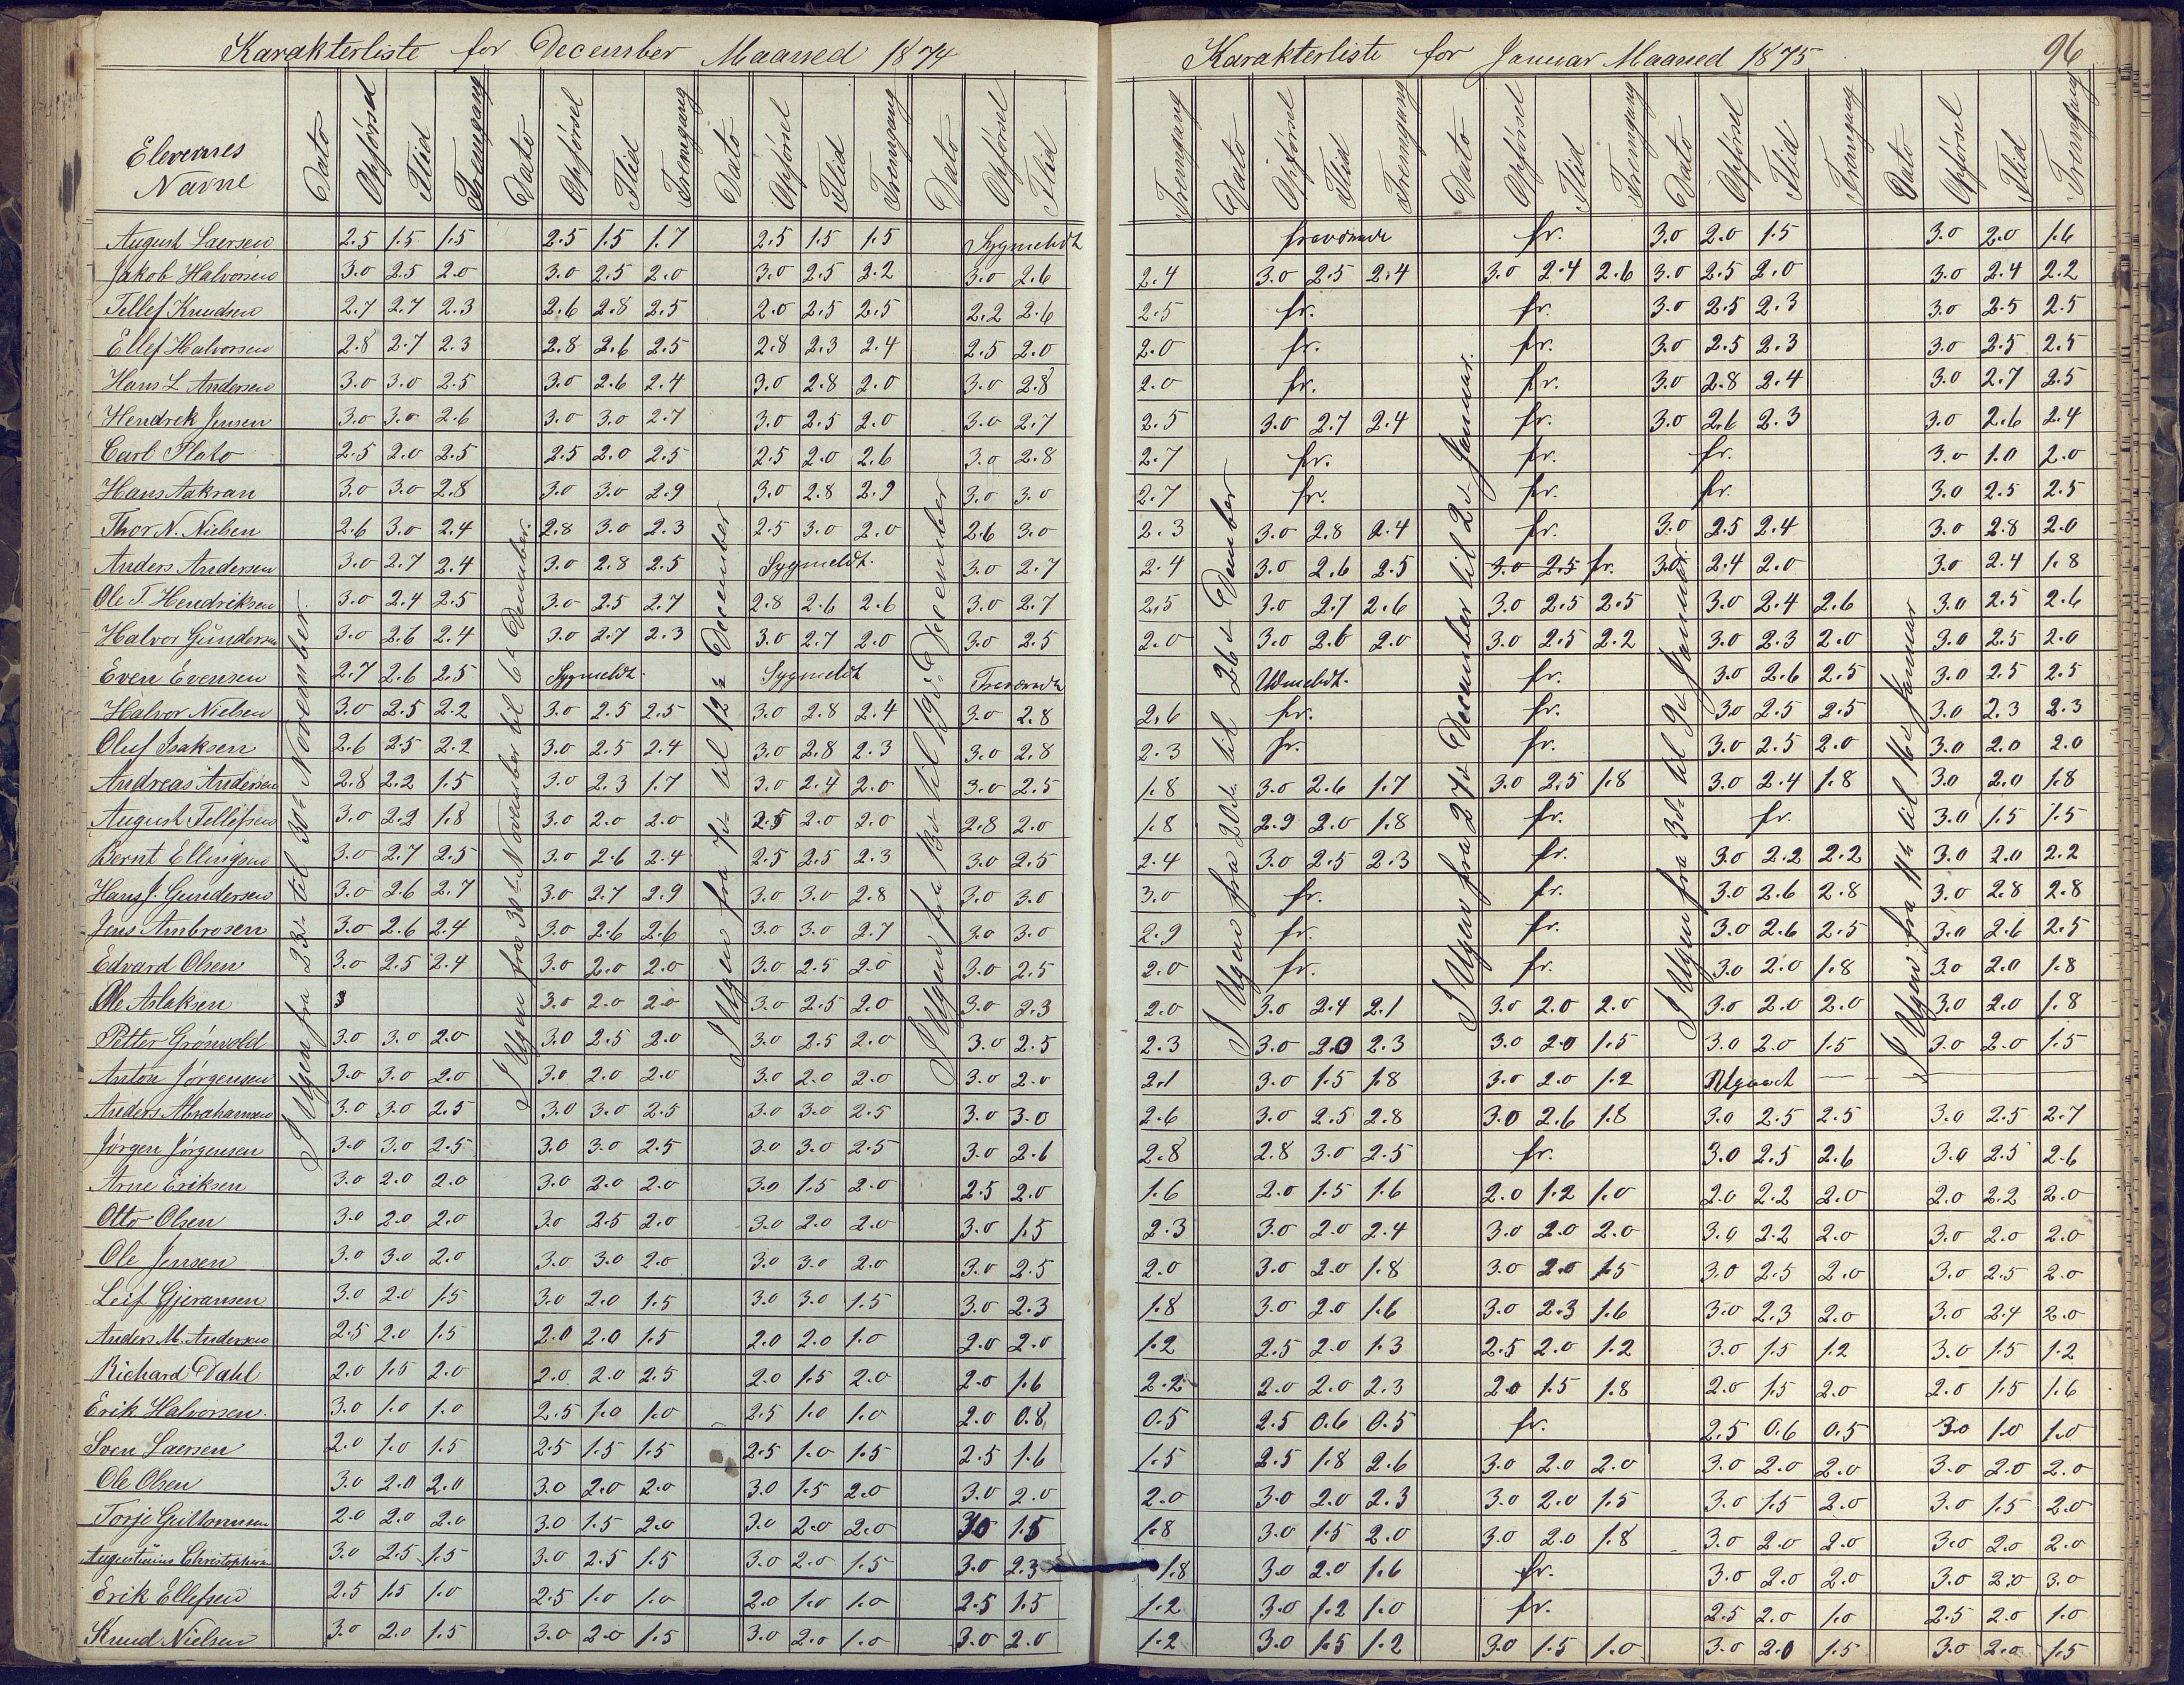 Karakterliste for December Maaned 1874
Elevernes Navne Dato Opførsel Flid Fremgang Dato Opførsel Flid Fremgang Dato Opførsel Flid Fremgang Dato Opførsel Flid
I Ugen fra 23de til 30te November.
I Ugen fra 30te November til 6te December.
I Ugen fra 7de til 12te December
I Ugen fra 13de til 19de December
August Laersen 2.5 1.5 1.5 2.5 1.5 1.7 2.5 1.5 1.5 Sygmeldt
Jakob Halvorsen 3.0 2.5 2.0 3.0 2.5 2.0 3.0 2.5 2.2 3.0 2.6
Tellef Knudsen 2.7 2.7 2.3 2.6 2.8 2.5 2.0 2.5 2.5 2.2 2.6
Ellef Halvorsen 2.8 2.7 2.3 2.8 2.6 2.5 2.8 2.3 2.4 2.5 2.0
Hans L. Andersen 3.0 3.0 2.5 3.0 2.6 2.4 3.0 2.8 2.0 3.0 2.8
Hendrek Jensen 3.0 3.0 2.6 3.0 3.0 2.7 3.0 2.5 2.0 3.0 2.7
Carl Plato 2.5 2.0 2.5 2.5 2.0 2.5 2.5 2.0 2.6 3.0 2.8
Hans Aakran 3.0 3.0 2.8 3.0 3.0 2.9 3.0 2.8 2.9 3.0 3.0
Thor N. Nielsen 2.6 3.0 2.4 2.8 3.0 2.3 2.5 3.0 2.0 2.6 3.0
Anders Andersen 3.0 2.7 2.4 3.0 2.8 2.5 Sygmeldt. 3.0 2.7
Ole T. Hendriksen 3.0 2.4 2.5 3.0 2.5 2.7 2.8 2.6 2.6 3.0 2.7
Halvor Gundersen 3.0 2.6 2.4 3.0 2.7 2.3 3.0 2.7 2.0 3.0 2.5
Even Evensen 2.7 2.6 2.5 Sygmeldt. Sygmeldt Fraværende
Halvor Nielsen 3.0 2.5 2.2 3.0 2.5 2.5 3.0 2.8 2.4 3.0 2.8
Oluf Isaksen 2.6 2.5 2.2 3.0 2.5 2.4 3.0 2.8 2.3 3.0 2.8
Andreas Andersen 2.8 2.2 1.5 3.0 2.3 1.7 3.0 2.4 2.0 3.0 2.5
August Tellefsen 3.0 2.2 1.8 3.0 2.0 2.0 2.5 2.0 2.0 2.8 2.0
Bernt Ellingsen 3.0 2.7 2.5 3.0 2.6 2.4 2.5 2.5 2.3 3.0 2.5
Hans J. Gundersen 3.0 2.6 2.7 3.0 2.7 2.9 3.0 3.0 2.8 3.0 3.0
Jens Ambrosen 3.0 2.6 2.4 3.0 2.6 2.6 3.0 3.0 2.7 3.0 3.0
Edvard Olsen 3.0 2.5 2.4 3.0 2.0 2.0 3.0 2.5 2.0 3.0 2.5
Ole Aslaksen 3 3.0 2.0 2.0 3.0 2.5 2.0 3.0 2.3
Petter Grønvold 3.0 3.0 2.0 3.0 2.5 2.0 3.0 2.5 2.0 3.0 2.5
Anton Jørgensen 3.0 3.0 2.0 3.0 2.0 2.0 3.0 2.0 2.0 3.0 2.0
Anders Abrahamsen 3.0 3.0 2.5 3.0 3.0 2.5 3.0 3.0 2.5 3.0 3.0
Jørgen Jørgensen 3.0 3.0 2.5 3.0 3.0 2.5 3.0 3.0 2.5 3.0 2.6
Arne Eriksen 3.0 2.0 2.0 3.0 2.0 2.0 3.0 1.5 2.0 2.5 2.0
Otto Olsen 3.0 2.0 2.0 3.0 2.5 2.0 3.0 2.0 2.0 3.0 1.5
Ole Jensen 3.0 3.0 2.0 3.0 3.0 2.0 3.0 3.0 2.0 3.0 2.5
Leif Gjeransen 3.0 2.0 1.5 3.0 2.0 1.5 3.0 3.0 1.5 3.0 2.3
Anders M. Andersen 2.5 2.0 1.5 2.0 2.0 1.5 2.0 2.0 1.0 2.0 2.0
Richard Dahl 2.0 1.5 2.0 2.0 2.0 2.5 2.0 1.5 2.0 2.0 1.6
Erik Halvorsen. 3.0 1.0 1.0 2.5 1.0 1.0 2.5 1.0 1.0 2.0 0.8
Sven Laersen 2.0 1.0 1.5 2.5 1.5 1.5 2.5 1.0 1.5 2.5 1.6
Ole Olsen 3.0 2.0 2.0 3.0 2.0 2.0 3.0 1.5 2.0 3.0 2.0
Torje Guttormsen 2.0 2.0 2.0 3.0 1.5 2.0 3.0 2.0 2.0 3.0 1.5
Augustinius Christophersen 3.0 2.5 1.5 3.0 2.5 1.5 3.0 2.0 1.5 3.0 2.3
Erik Ellefsen 2.5 1.5 1.0 2.5 1.0 1.0 2.0 1.0 1.0 2.5 1.5
Knud Nielsen 3.0 2.0 1.5 3.0 2.0 1.5 3.0 2.0 1.0 3.0 2.0
Karakterliste for Januar Maaned 1875 96
Fremgang Dato Opførsel Flid Fremgang Dato Opførsel Flid Fremgang Dato Opførsel Flid Fremgang Dato Opførsel Flid Fremgang
I Ugen fra 20de til 26de December
I Ugen fra 27de December til 2den Januar.
I Ugen fra 3die til 9de Januar.
I Ugen fra 11te til 16de Januar
fraværende fr. 3.0 2.0 1.5 3.0 2.0 1.6
2.4 3.0 2.5 2.4 3.0 2.4 2.6 3.0 2.5 2.0 3.0 2.4 2.2
2.5 fr. fr. 3.0 2.5 2.3 3.0 2.5 2.5
2.0 fr. fr. 3.0 2.5 2.3 3.0 2.5 2.5
2.0 fr. fr. 3.0 2.8 2.4 3.0 2.7 2.5
2.5 3.0 2.7 2.4 fr. 3.0 2.6 2.3 3.0 2.6 2.4
2.7 fr. fr. fr. 3.0 1.0 2.0
2.7 fr. fr. fr. 3.0 2.5 2.5
2.3 3.0 2.8 2.4 fr. 3.0 2.5 2.4 3.0 2.8 2.0
2.4 3.0 2.6 2.5 3.0 2.5 fr. 3.0 2.4 2.0 3.0 2.4 1.8
2.5 3.0 2.7 2.6 3.0 2.5 2.5 3.0 2.4 2.6 3.0 2.5 2.6
2.0 3.0 2.6 2.0 3.0 2.5 2.2 3.0 2.3 2.0 3.0 2.5 2.0
Udmeldt. fr. 3.0 2.6 2.5 3.0 2.5 2.5
2.6 fr. fr. 3.0 2.5 2.5 3.0 2.3 2.3
2.3 fr. fr. 3.0 2.5 2.0 3.0 2.0 2.0
1.8 3.0 2.6 1.7 3.0 2.5 1.8 3.0 2.4 1.8 3.0 2.0 1.8
1.8 2.9 2.0 1.8 fr. fr. 3.0 1.5 1.5
2.4 3.0 2.5 2.3 fr. 3.0 2.2 2.2 3.0 2.0 2.2
3.0 fr. fr. 3.0 2.6 2.8 3.0 2.8 2.8
2.9 fr. fr. 3.0 2.6 2.5 3.0 2.6 2.5
2.0 fr. fr. 3.0 2.0 1.8 3.0 2.0 1.8
2.0 3.0 2.4 2.1 3.0 2.0 2.0 3.0 2.0 2.0 3.0 2.0 1.8
2.3 3.0 2.0 2.3 3.0 2.0 1.5 3.0 2.0 1.5 3.0 2.0 1.5
2.1 3.0 1.5 1.8 3.0 2.0 1.2 Udgaaet — — —
2.6 3.0 2.5 2.8 3.0 2.6 1.8 3.0 2.5 2.5 3.0 2.5 2.7
2.8 2.8 3.0 2.5 fr. 3.0 2.5 2.6 3.0 2.5 2.6
1.6 2.0 1.5 1.6 2.0 1.2 1.0 2.0 2.2 2.0 2.0 2.2 2.0
2.3 3.0 2.0 2.4 3.0 2.0 2.0 3.0 2.2 2.0 3.0 2.0 2.0
2.0 3.0 2.0 1.8 3.0 2.0 1.5 3.0 2.5 2.0 3.0 2.5 2.0
1.8 3.0 2.0 1.6 3.0 2.3 1.6 3.0 2.3 2.0 3.0 2.4 2.0
1.2 2.5 2.0 1.3 2.5 2.0 1.2 3.0 1.5 1.2 3.0 1.5 1.2
2.2 2.0 2.0 2.3 2.0 1.5 1.8 2.0 1.5 2.0 2.0 1.5 1.6
0.5 2.5 0.6 0.5 fr. 2.5 0.6 0.5 3.0 1.0 1.0
1.5 2.5 1.8 2.6 3.0 2.0 2.0 3.0 2.0 2.0 3.0 2.0 2.0
2.0 3.0 2.0 2.3 3.0 2.0 1.5 3.0 1.5 2.0 3.0 1.5 2.0
1.8 3.0 1.5 2.0 3.0 2.0 1.8 3.0 2.0 2.0 3.0 2.0 2.0
1.8 3.0 2.0 1.6 fr. 3.0 2.0 2.0 3.0 2.0 3.0
1.2 3.0 1.2 1.0 fr. 2.5 2.0 1.0 2.5 2.0 1.0
1.2 3.0 1.5 1.2 3.0 1.5 1.0 3.0 2.0 1.5 3.0 2.0 1.5